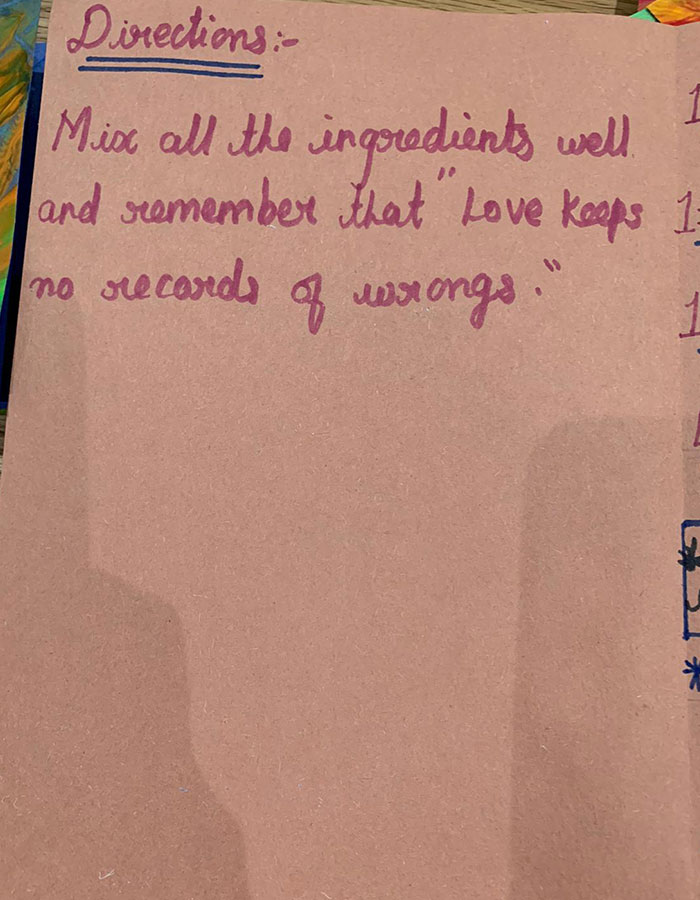 Directions:-
Mix all the ingredients well
and remember that "Love keeps
no records of wrongs."
1
1
1
*
*